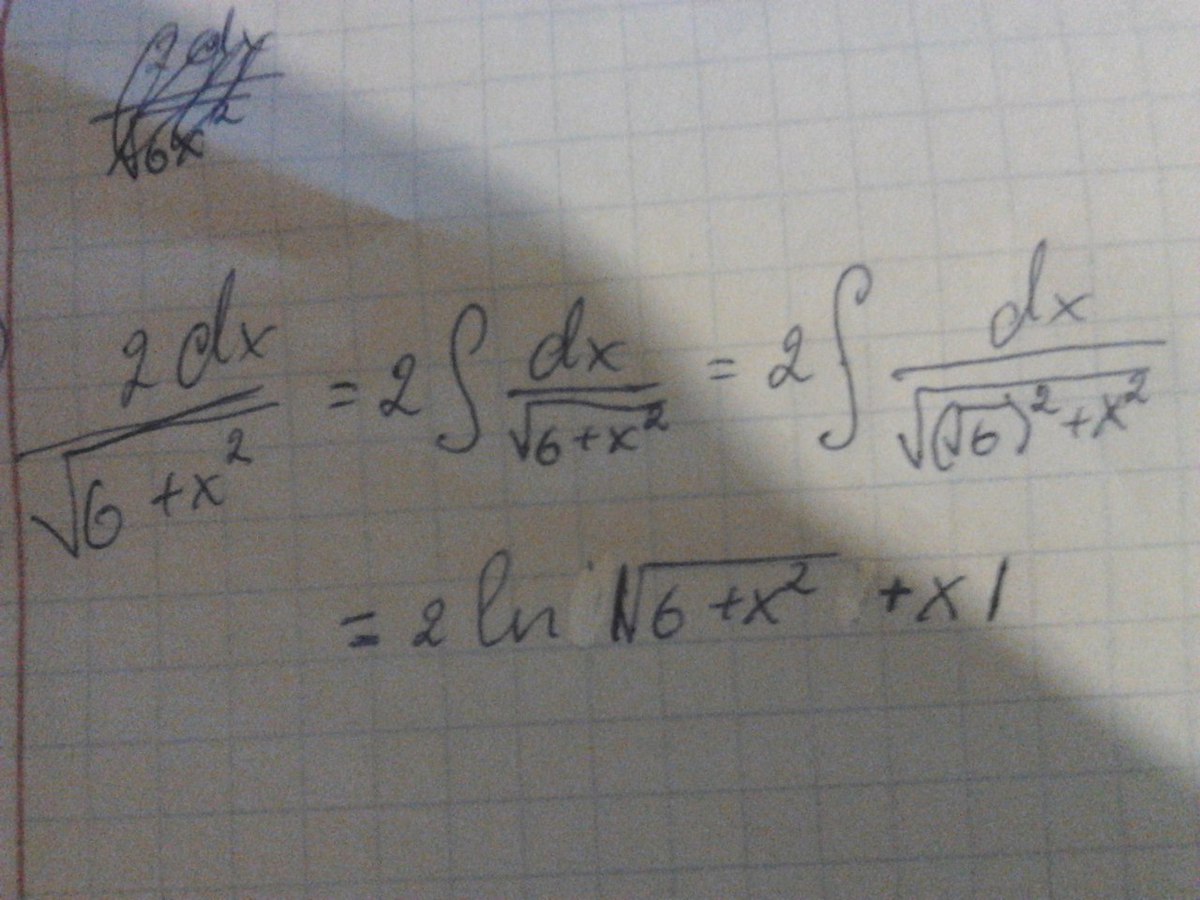 2 dx / √(6 + x²) = 2 ∫ dx / √(6 + x²) = 2 ∫ dx / √((√6)² + x²)
= 2 ln |√(6 + x²) + x|